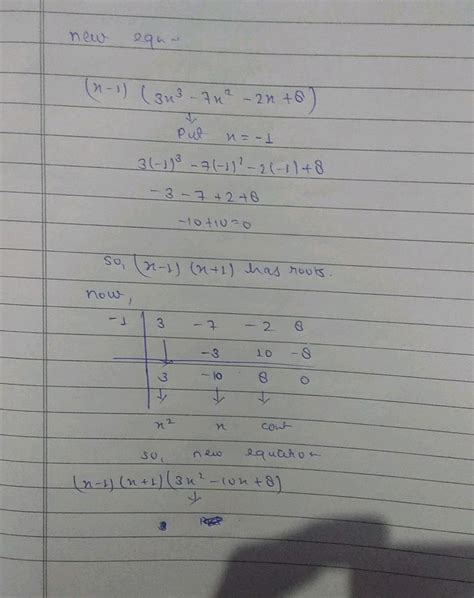 new equ -
(x-1) (3x³ - 7x² - 2x + 8)
↓
Put x = -1
3(-1)³ - 7(-1)² - 2(-1) + 8
- 3 - 7 + 2 + 8
-10 + 10 = 0
so, (x-1) (x+1) has roots.
now,
-1 | 3 -7 -2 8
↓ -3 10 -8
3 -10 8 0
↓ ↓ ↓
x² x cont
so, new equation
(x-1) (x+1) (3x² - 10x + 8)
↓